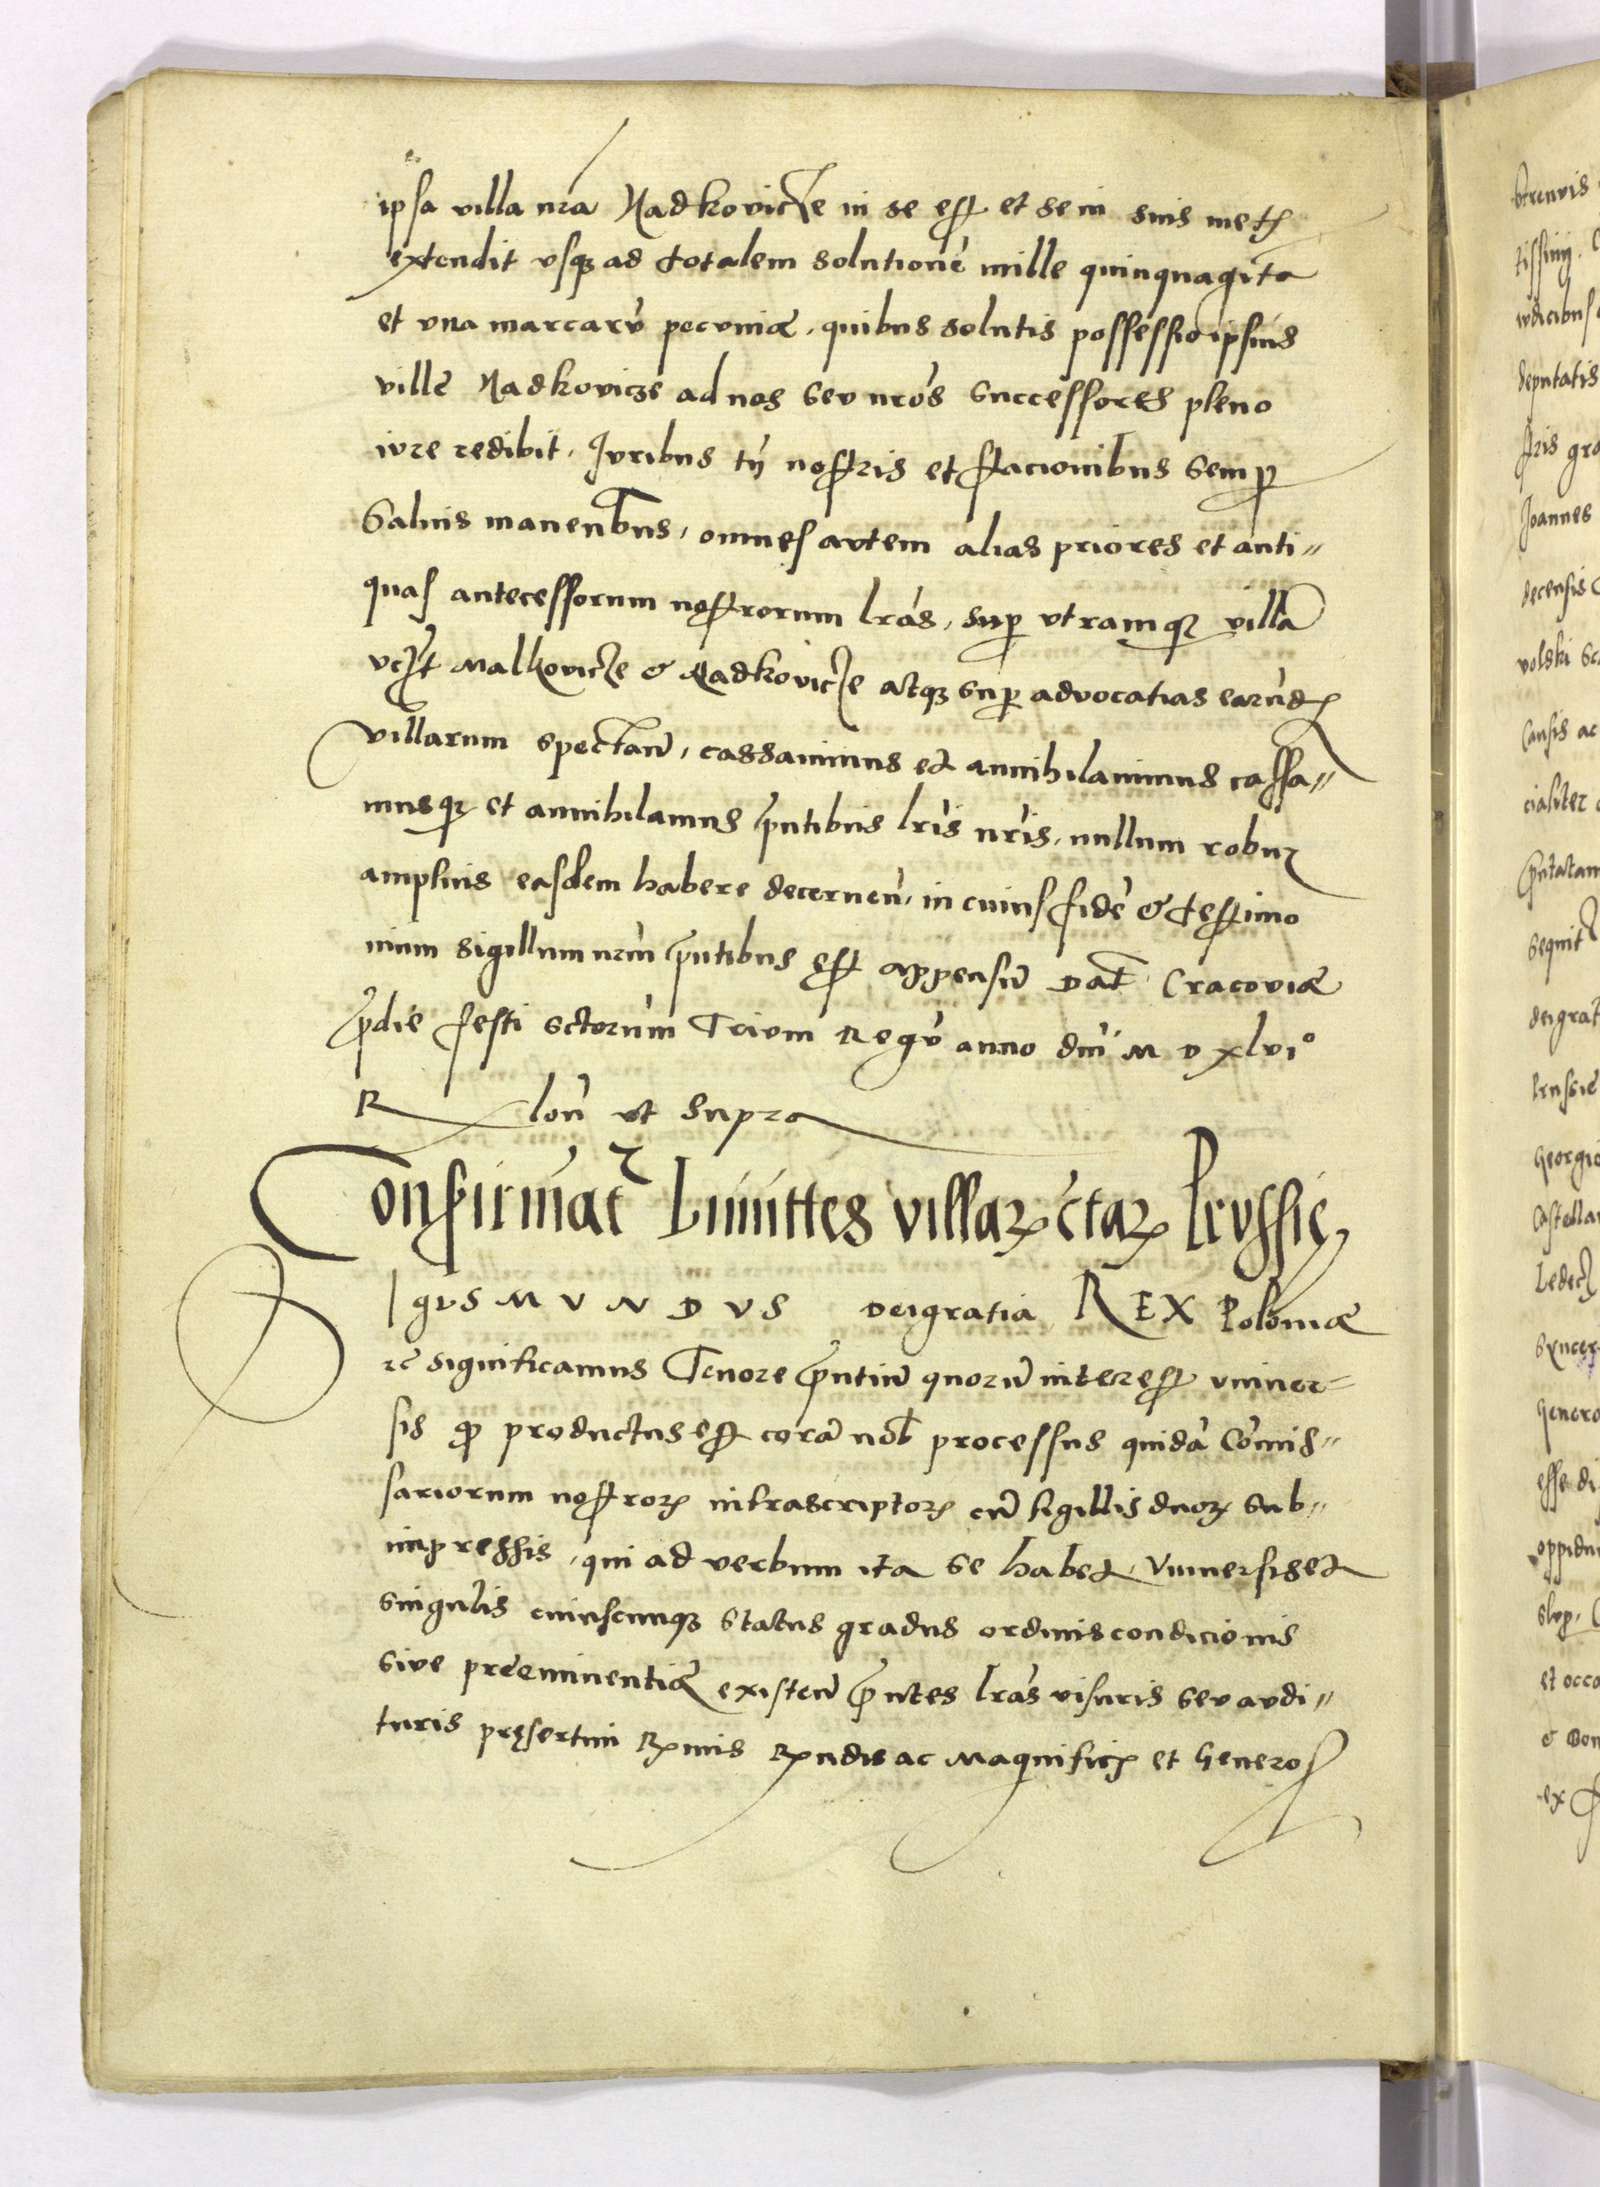 ipsa villa nr̃a Nadkovicze in se est et se in suis metis
extendit vsq3 ad totalem solutionē mille quinquaginta
et vna marcarū pecuniæ, quibus solutis possessio ipsius
ville Nadkovicze ad nos seu nr̃os successores pleno
iure redibit. Iuribus tn̄ nostris et stacionibus semp
Saluis manentibus, omnes autem alias priores et anti=
quas antecessorum nostrorum lr̃as, sup vtramq3 villā
vcȝt Malkovicze & Nadkovicze atq3 sup advocatias earūdē
villarum spectan̄, cassauimus et annihilauimus cassa=
musq3 et annihilamus pn̄tibus lr̃is nr̃is, nullum robur
amplius easdem habere decernen̄, in cuius fidē & testimo
nium sigillum nr̃m pn̄tibus est appensū Dat̄ Cracoviæ
pdie festi sctorum Trium Regū anno dn̄i M D xlvi°
R lōn vt supra
Confirmat̄ Limittes villaꝝ c̄taꝝ Prussie
SIgvsMVNDVS Dei gratia REX Poloniæ
rē significamus Tenore pn̄tiū quorū interest vniuer=
sis q productus est corā nob̄ processus quidā Com̄is=
sariorum nostroꝝ infrascriptoꝝ cū sigillis duoꝝ sub=
impressis, qui ad verbum ita se habet, Vniuersis et
singulis cuiuscunq3 status gradus ordinis condicionis
siue preeminentię existen̄ pn̄tes lr̃as visuris seu audi=
turis pręsertim Rmis Rndis ac Magnificis et Generos